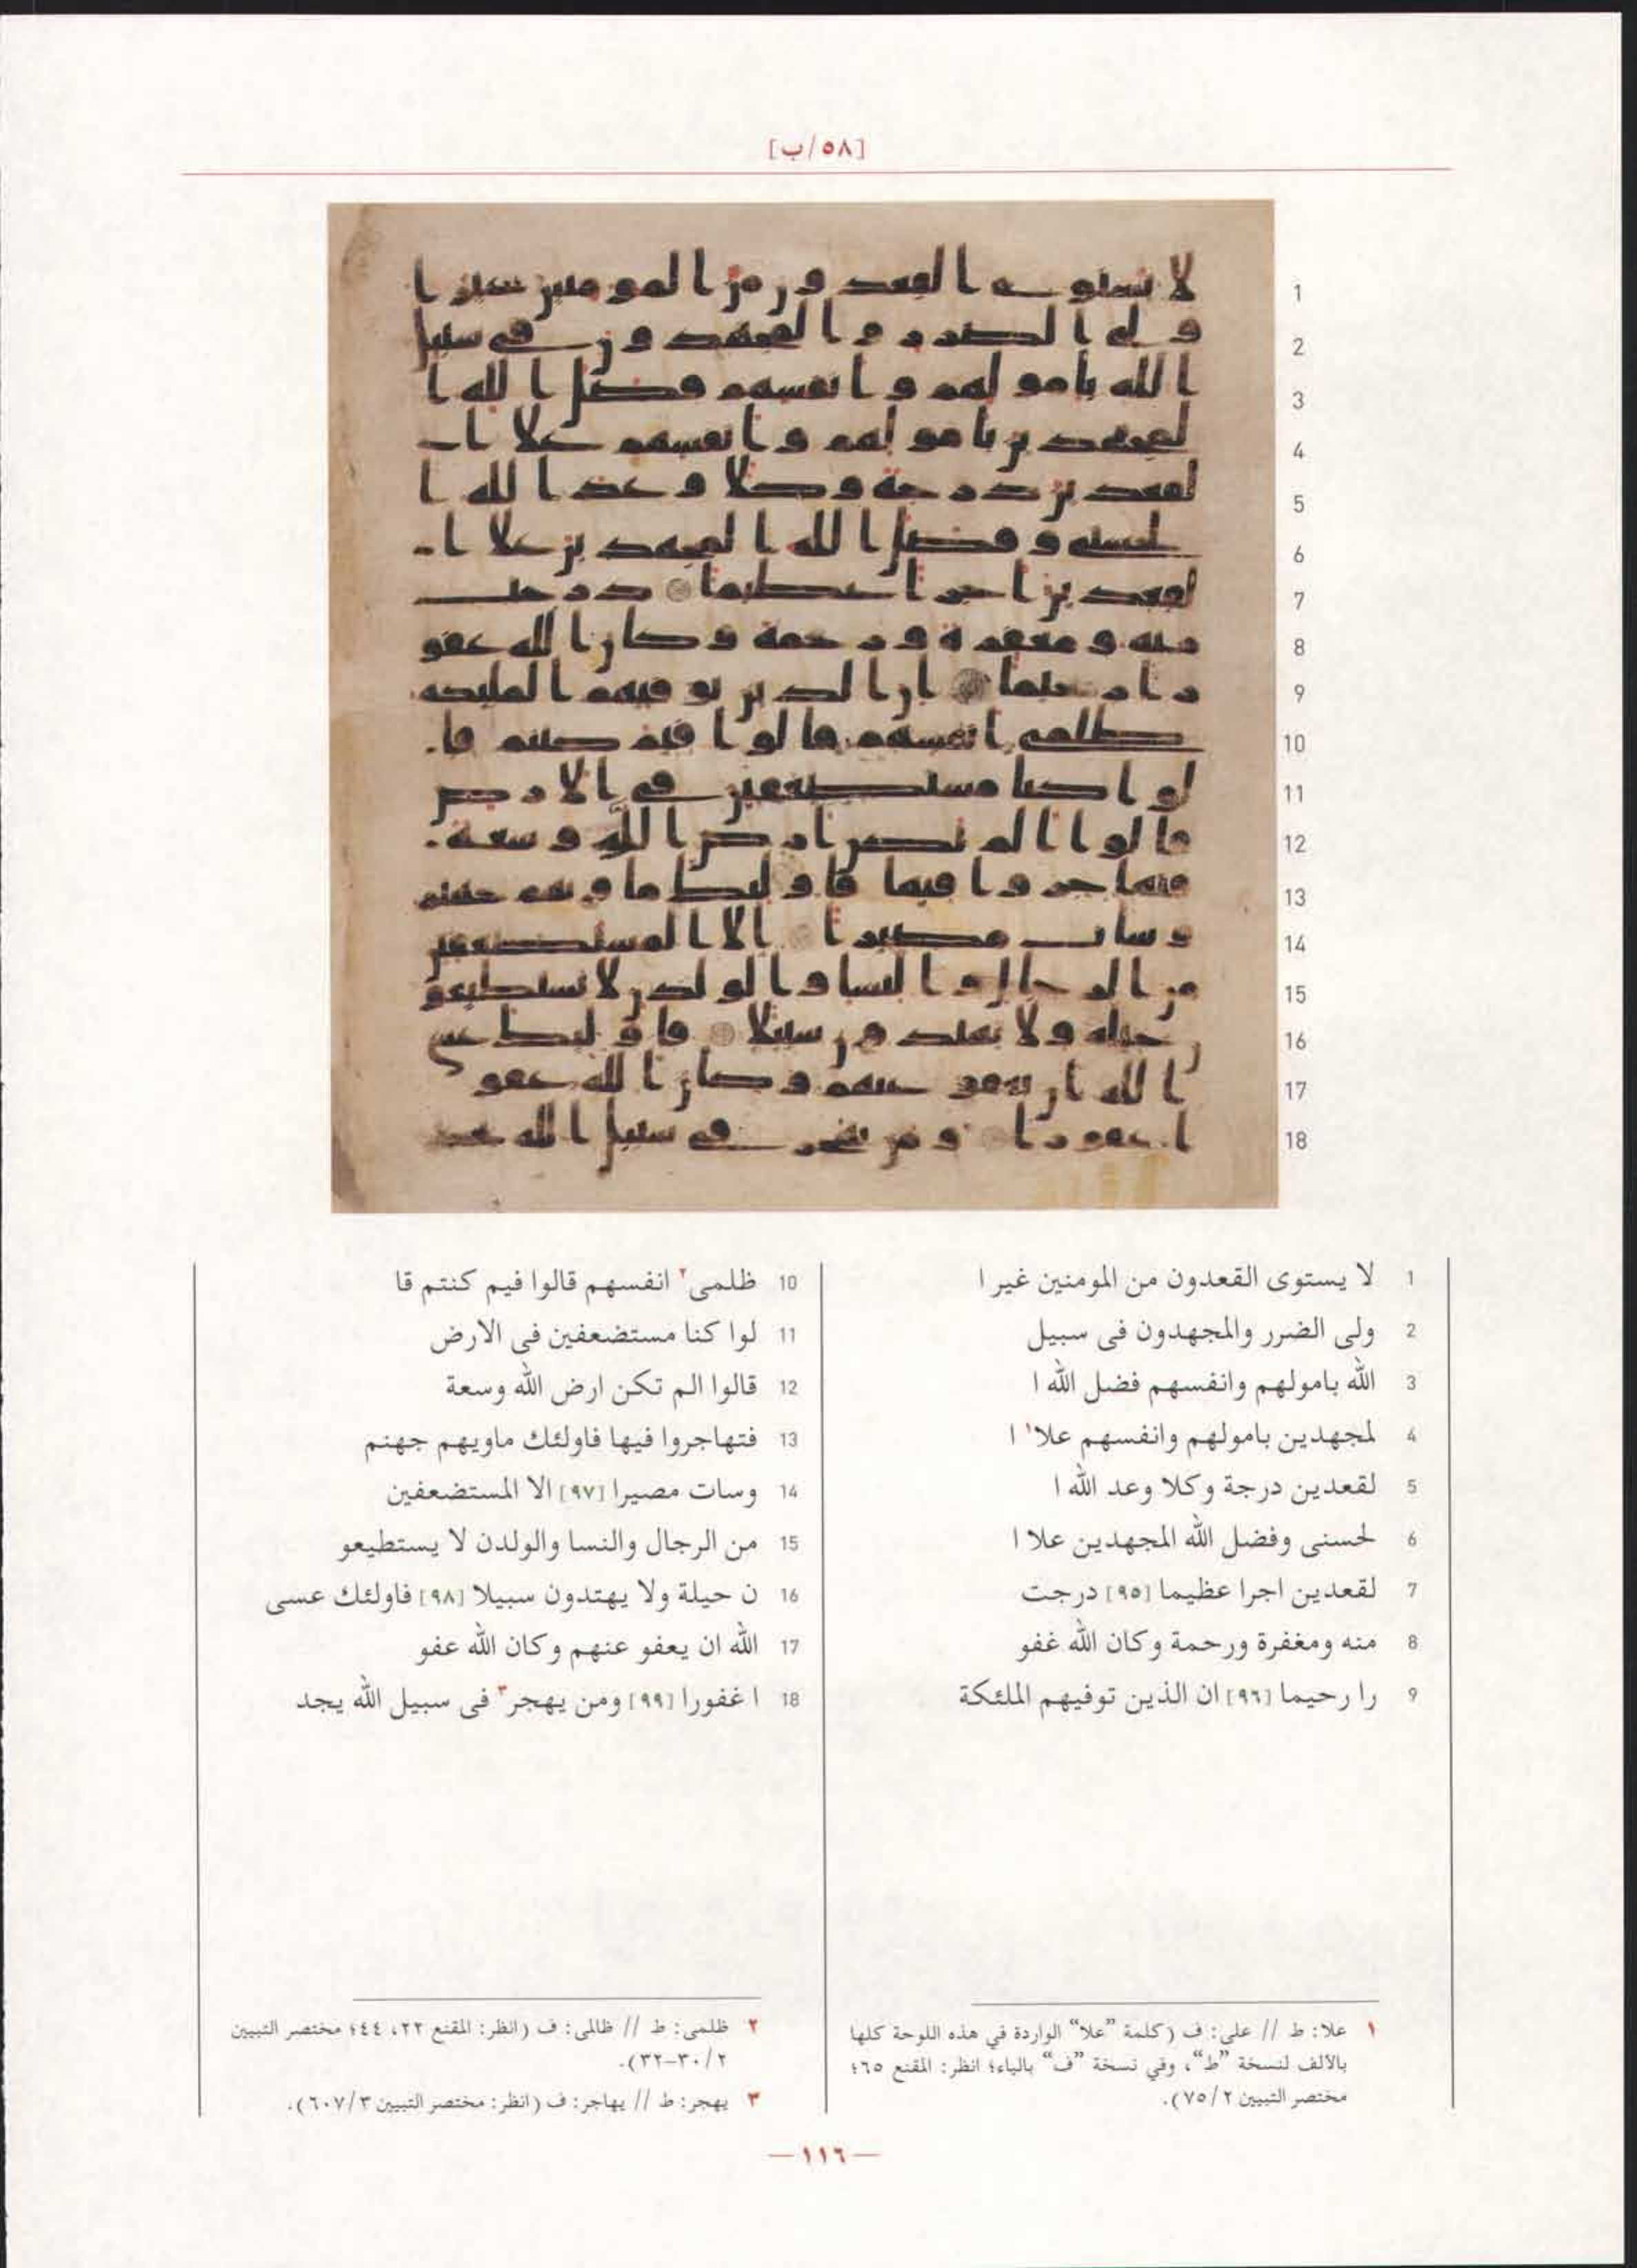 [٥٨/ب]
1 لا يستوى القعدون من المومنين غير ا
2 ولى الضرر والمجهدون فى سبيل
3 الله بامولهم وانفسهم فضل الله ا
4 لمجهدين بامولهم وانفسهم علا١ ا
5 لقعدين درجة وكلا وعد الله ا
6 لحسنى وفضل الله المجهدين علا ا
7 لقعدين اجرا عظيما [٩٥] درجت
8 منه ومغفرة ورحمة وكان الله غفو
9 را رحيما [٩٦] ان الذين توفيهم الملئكة
10 ظلمى٢ انفسهم قالوا فيم كنتم قا
11 لوا كنا مستضعفين فى الارض
12 قالوا الم تكن ارض الله وسعة
13 فتهاجروا فيها فاولئك ماويهم جهنم
14 وسات مصيرا [٩٧] الا المستضعفين
15 من الرجال والنسا والولدن لا يستطيعو
16 ن حيلة ولا يهتدون سبيلا [٩٨] فاولئك عسى
17 الله ان يعفو عنهم وكان الله عفو
18 ا غفورا [٩٩] ومن يهجر٣ فى سبيل الله يجد
١ علا: ط // على: ف (كلمة ”علا“ الواردة في هذه اللوحة كلها
بالألف لنسخة ”ط“، وفي نسخة ”ف“ بالياء؛ انظر: المقنع ٦٥؛
مختصر التبيين ٧٥/٢).
٢ ظلمى: ط // ظالمى: ف (انظر: المقنع ٢٢، ٤٤؛ مختصر التبيين
٣٠/٢-٣٢).
٣ يهجر: ط // يهاجر: ف (انظر: مختصر التبيين ٦٠٧/٣).
—١١٦—